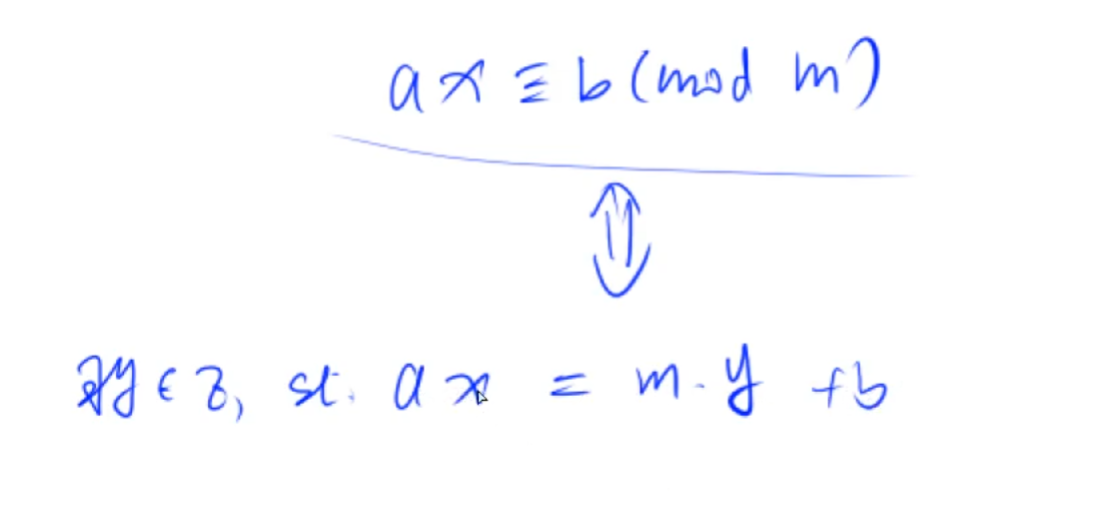 ax ≡ b (mod m)
⇕
∃y ∈ Z, st. ax = m·y + b